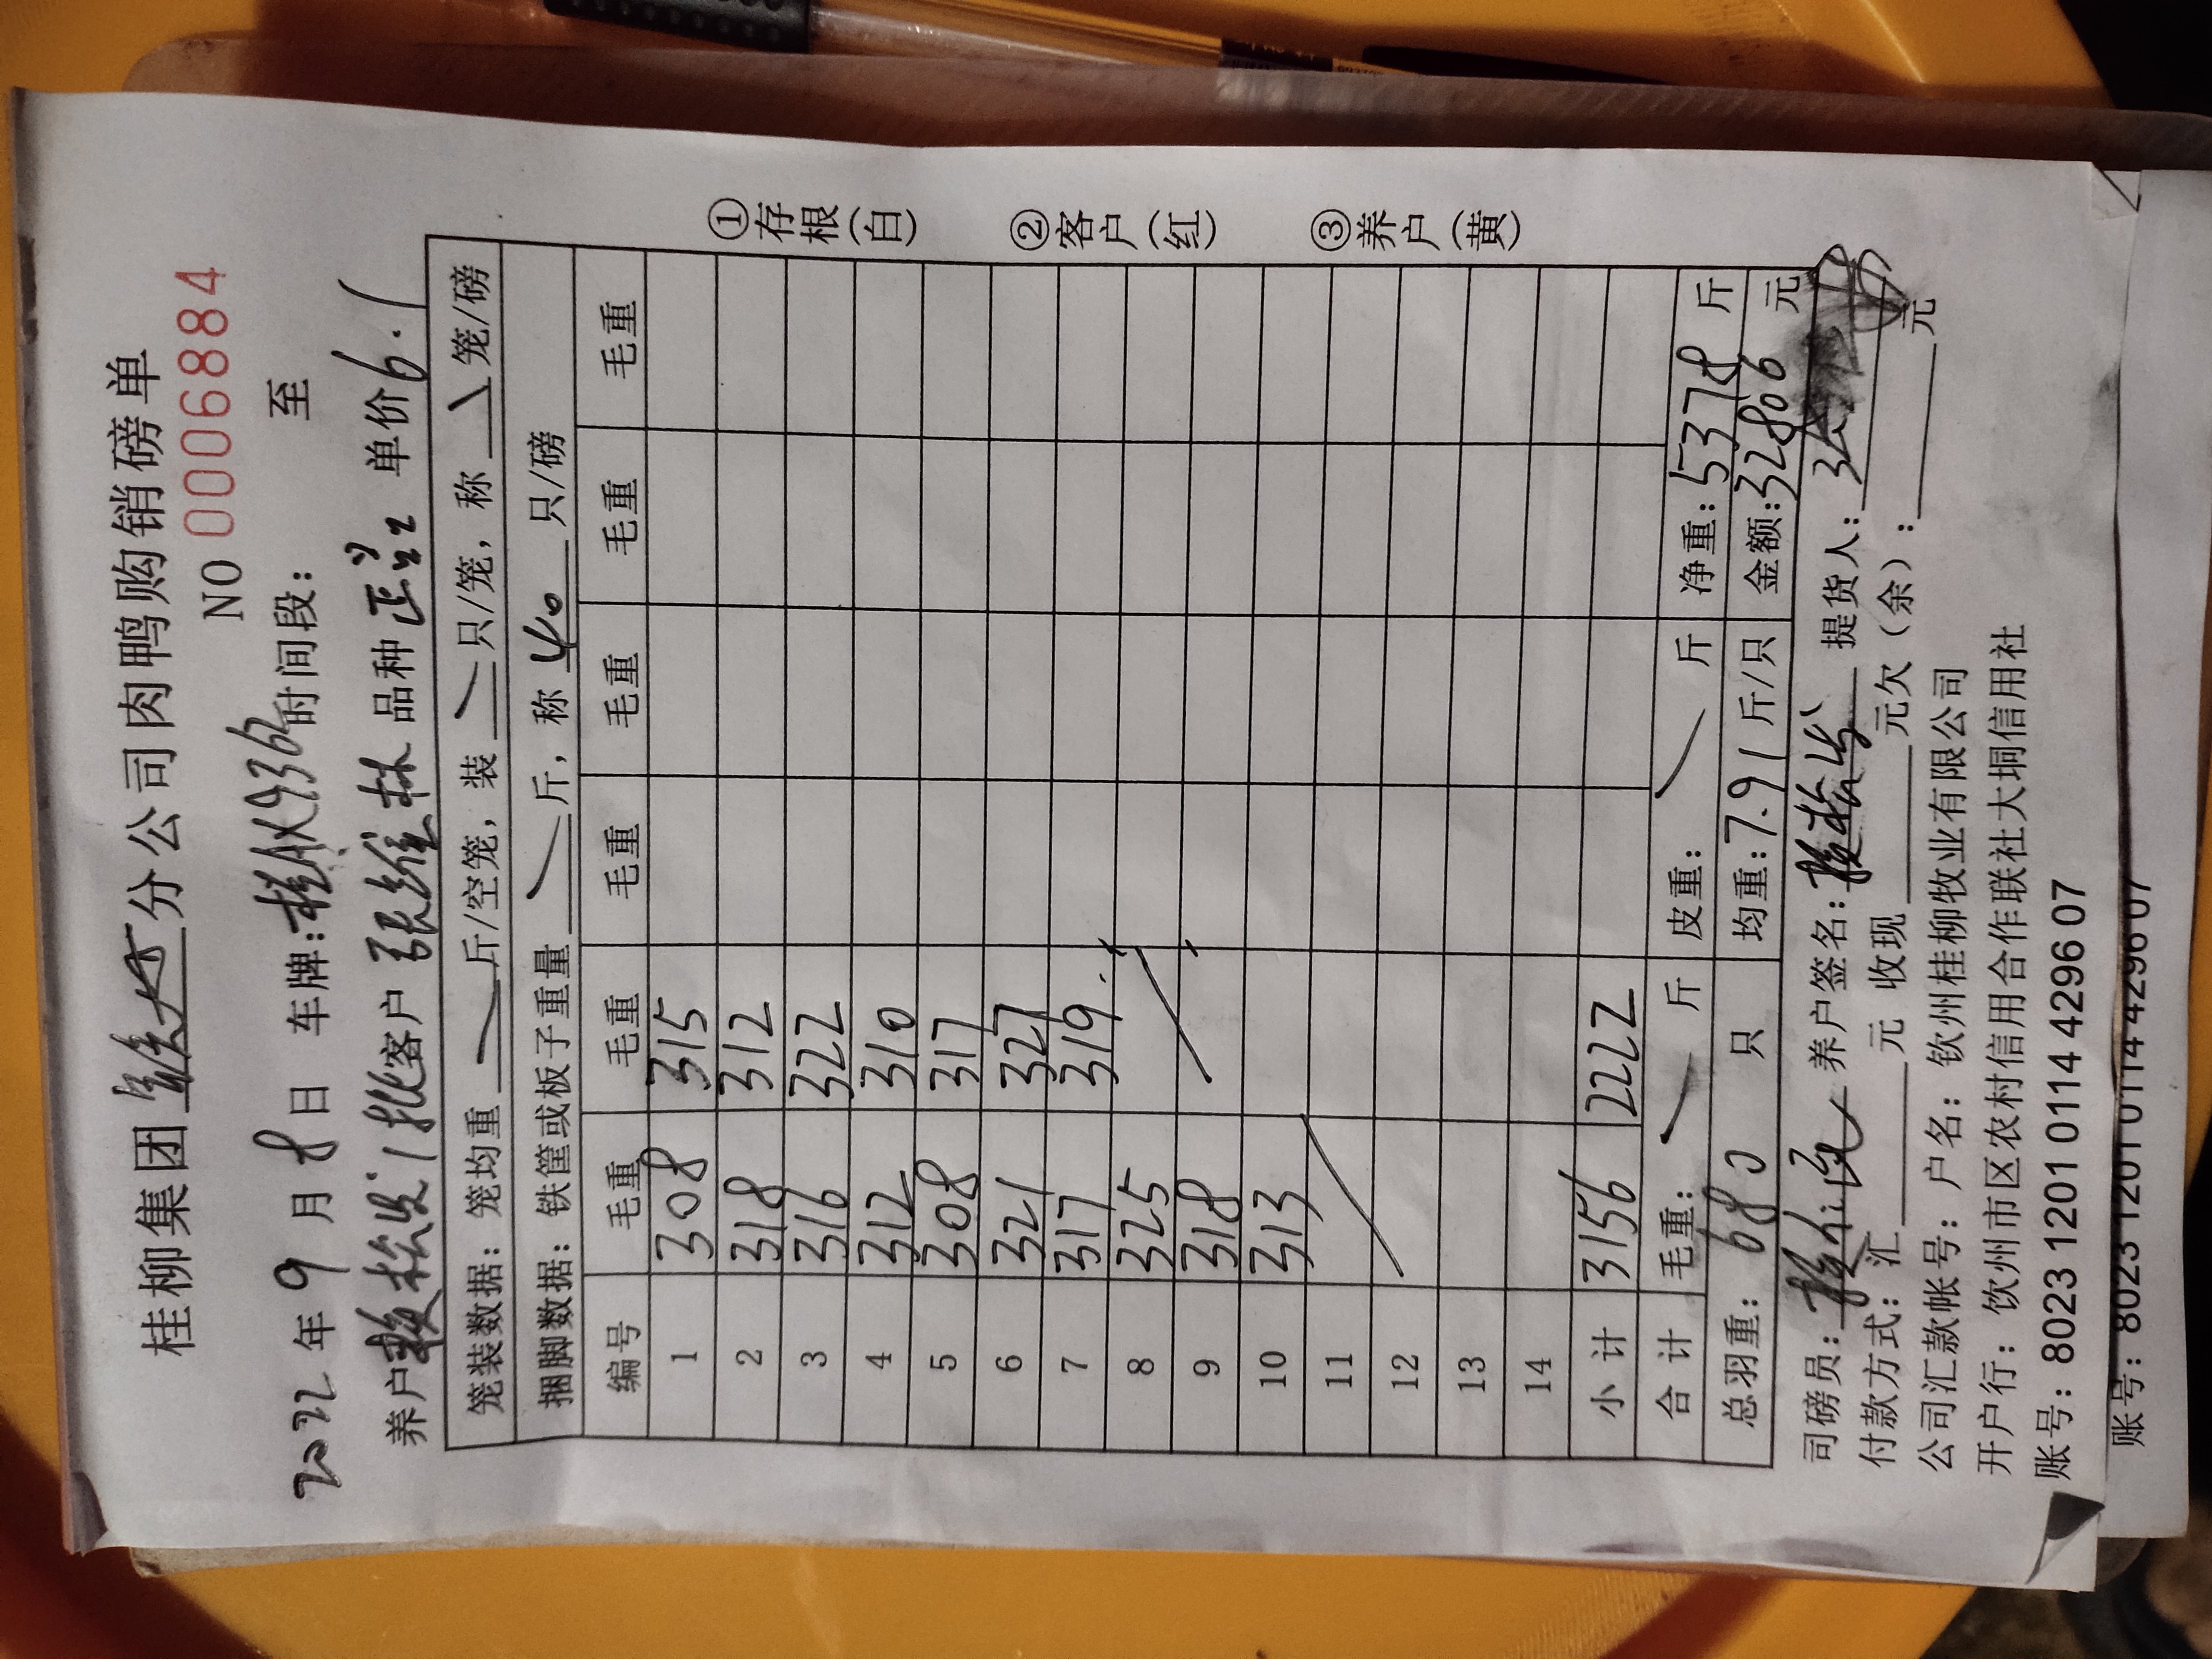 桂柳集团 分公司肉鸭购销磅单
NO 0006884
2022年9月8日 车牌:桂AX9362时间段: 至
养户赖松发1批客户张维林品种 单价6.1
笼装数据:笼均重 斤/空笼,装 只/笼,称 笼/磅
捆脚数据:铁筐或板子重量 斤,称40只/磅
编号 毛重 毛重 毛重 毛重 毛重 毛重
1 308 315
2 318 312
3 316 322
4 312 310
5 308 317
6 321 327
7 317 319
8 325
9 318
10 313
11
12
13
14
小计 3156 2222
合计 毛重: 斤 皮重: 斤 净重:5378斤
总羽重:680只 均重:7.91斤/只 金额:32806元
司磅员: 养户签名: 提货人:
付款方式:汇 元 收现 元欠(余): 元
公司汇款帐号:户名:钦州桂柳牧业有限公司
开户行:饮州市区农村信用合作联社大垌信用社
账号:8023 1201 0114 4296 07
账号:8023 1201 0114 4296 07
①存根(白)
②客户(红)
③养户(黄)